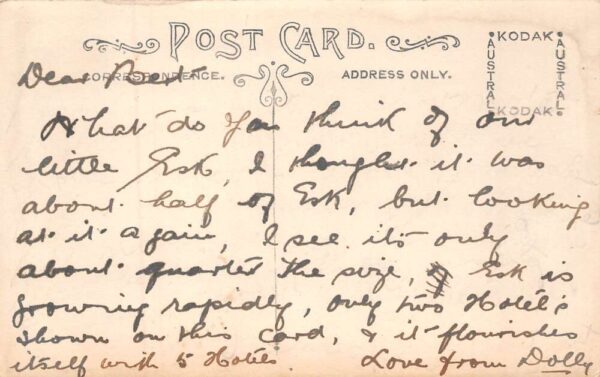 POST CARD.
Dear Bert
CORRESPONDENCE.
ADDRESS ONLY.
AUSTRAL
KODAK
AUSTRAL
KODAK
What do you think of our
little Esk, I thought it was
about half of Esk, but looking
at it again, I see its only
about quarter the size, Esk is
growing rapidly, only two Hotel's
shown on this card, & it flourishes
itself with 5 Hotels.
Love from Dolly